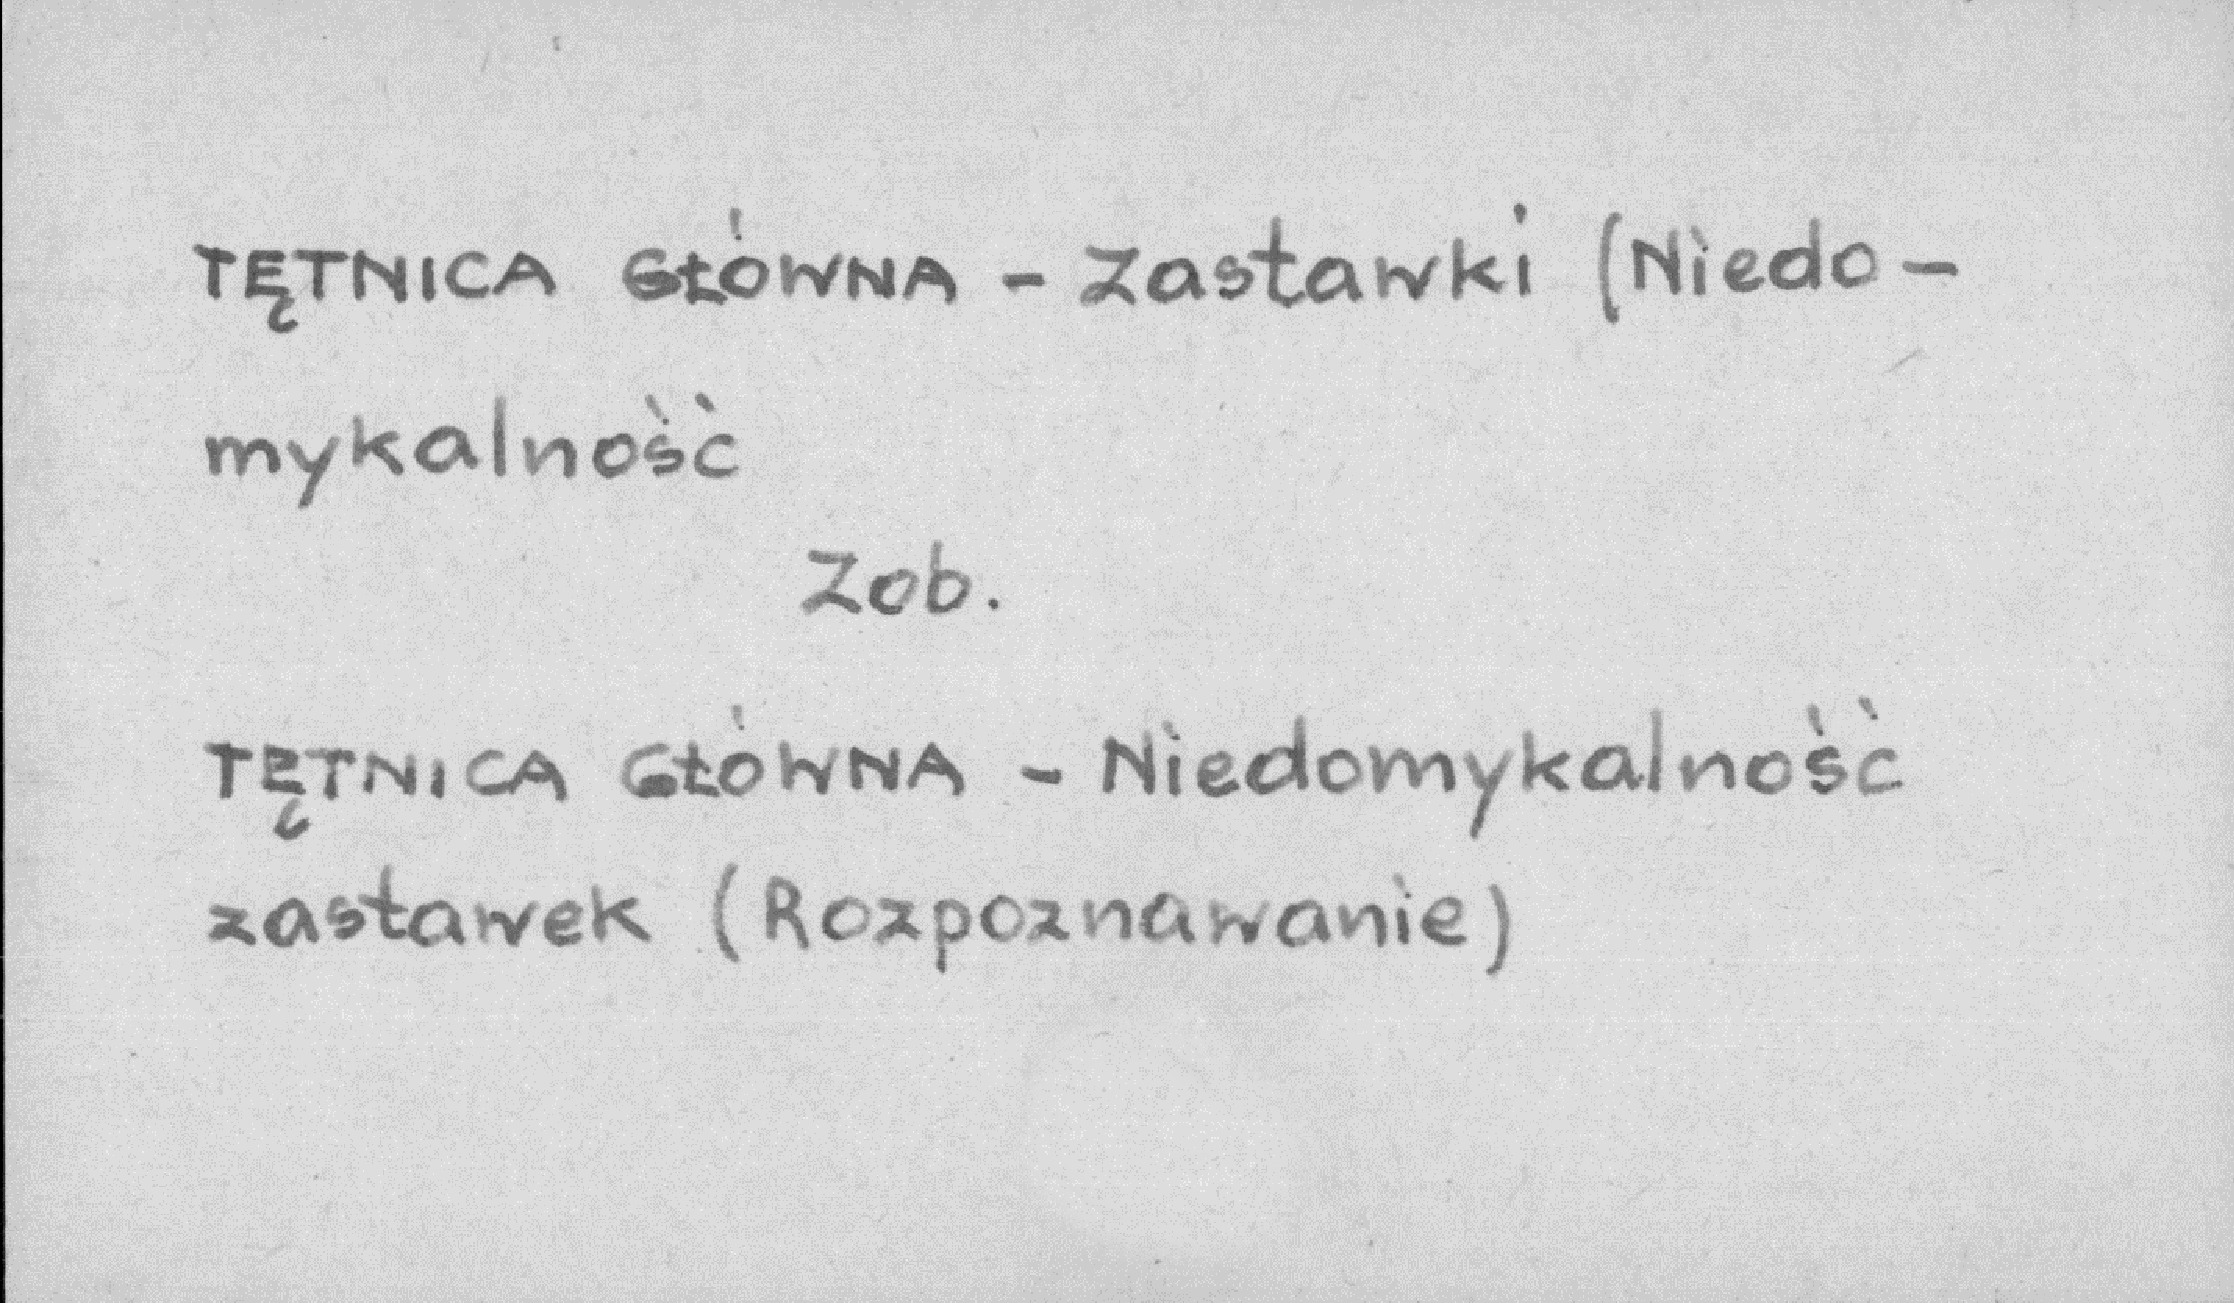 TĘTNICA GŁÓWNA - Zastawki (Niedo-
mykalność
Zob.
TĘTNICA GŁÓWNA - Niedomykalność
zastawek (Rozpoznawanie)